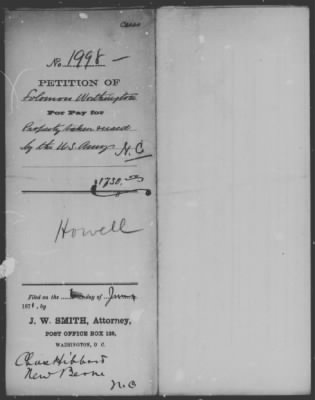 No. 1998 -
PETITION OF
Solomon Worthington
For Pay for
Property taken & used
by the U.S. Army
N.C
1730.
Howell
Filed on the day of
187 , by
J. W. SMITH, Attorney,
POST OFFICE BOX
WASHINGTON, D. C.
Chas Hibbert
New Berne
N.C